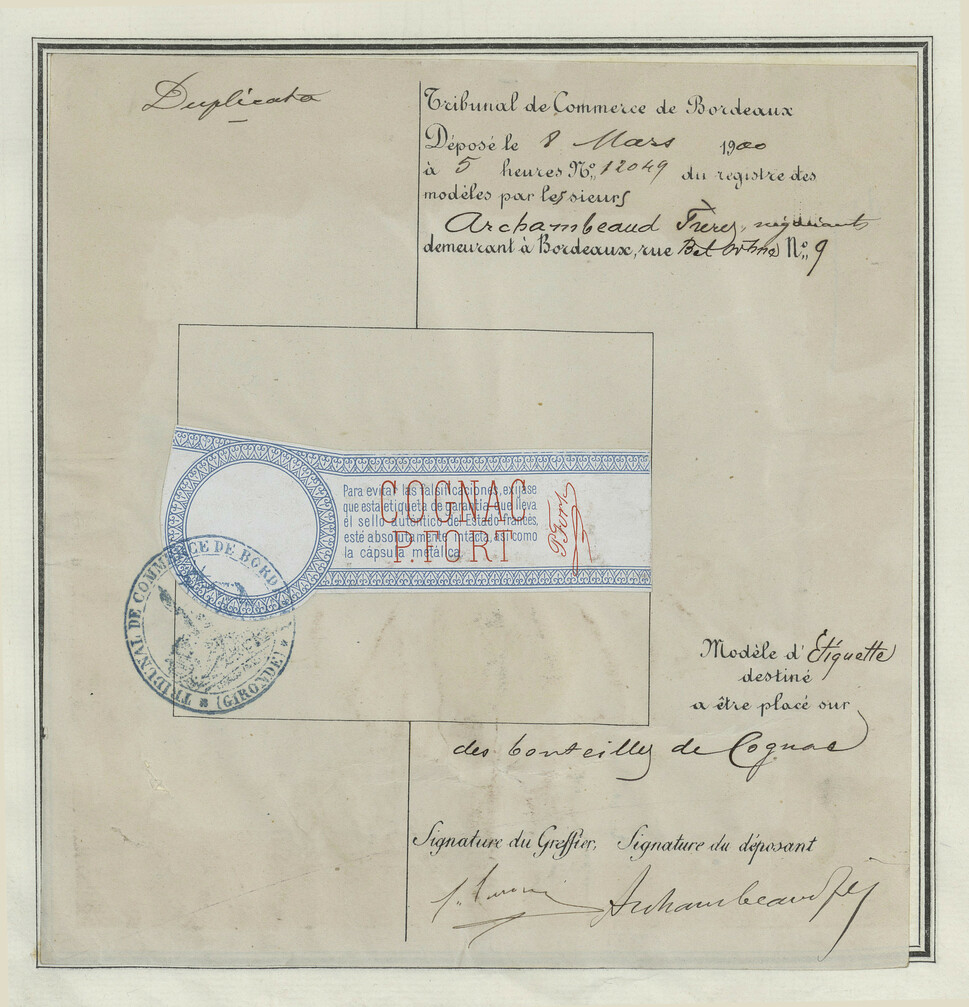 Duplicata
Tribunal de Commerce de Bordeaux
Déposé le 8 Mars 1900
à 5 heures Nº 12049 du registre des
modèles par les sieurs
Archambeaud Frères, négociants
demeurant à Bordeaux, rue Nº 9
Para evitar las falsificaciones, exijase
que esta etiqueta de garantia que lleva
el sello autentico del Estado francés,
esté absolutamente intacta, asi como
la cápsula metálica.
COGNAC
P. FORT
P. Fort
TRIBUNAL DE COMMERCE DE BORD
(GIRONDE)
Modèle d'Etiquette
destiné
a être placé sur
des bouteilles de Cognac
Signature du Greffier, Signature du déposant
Archambeaud